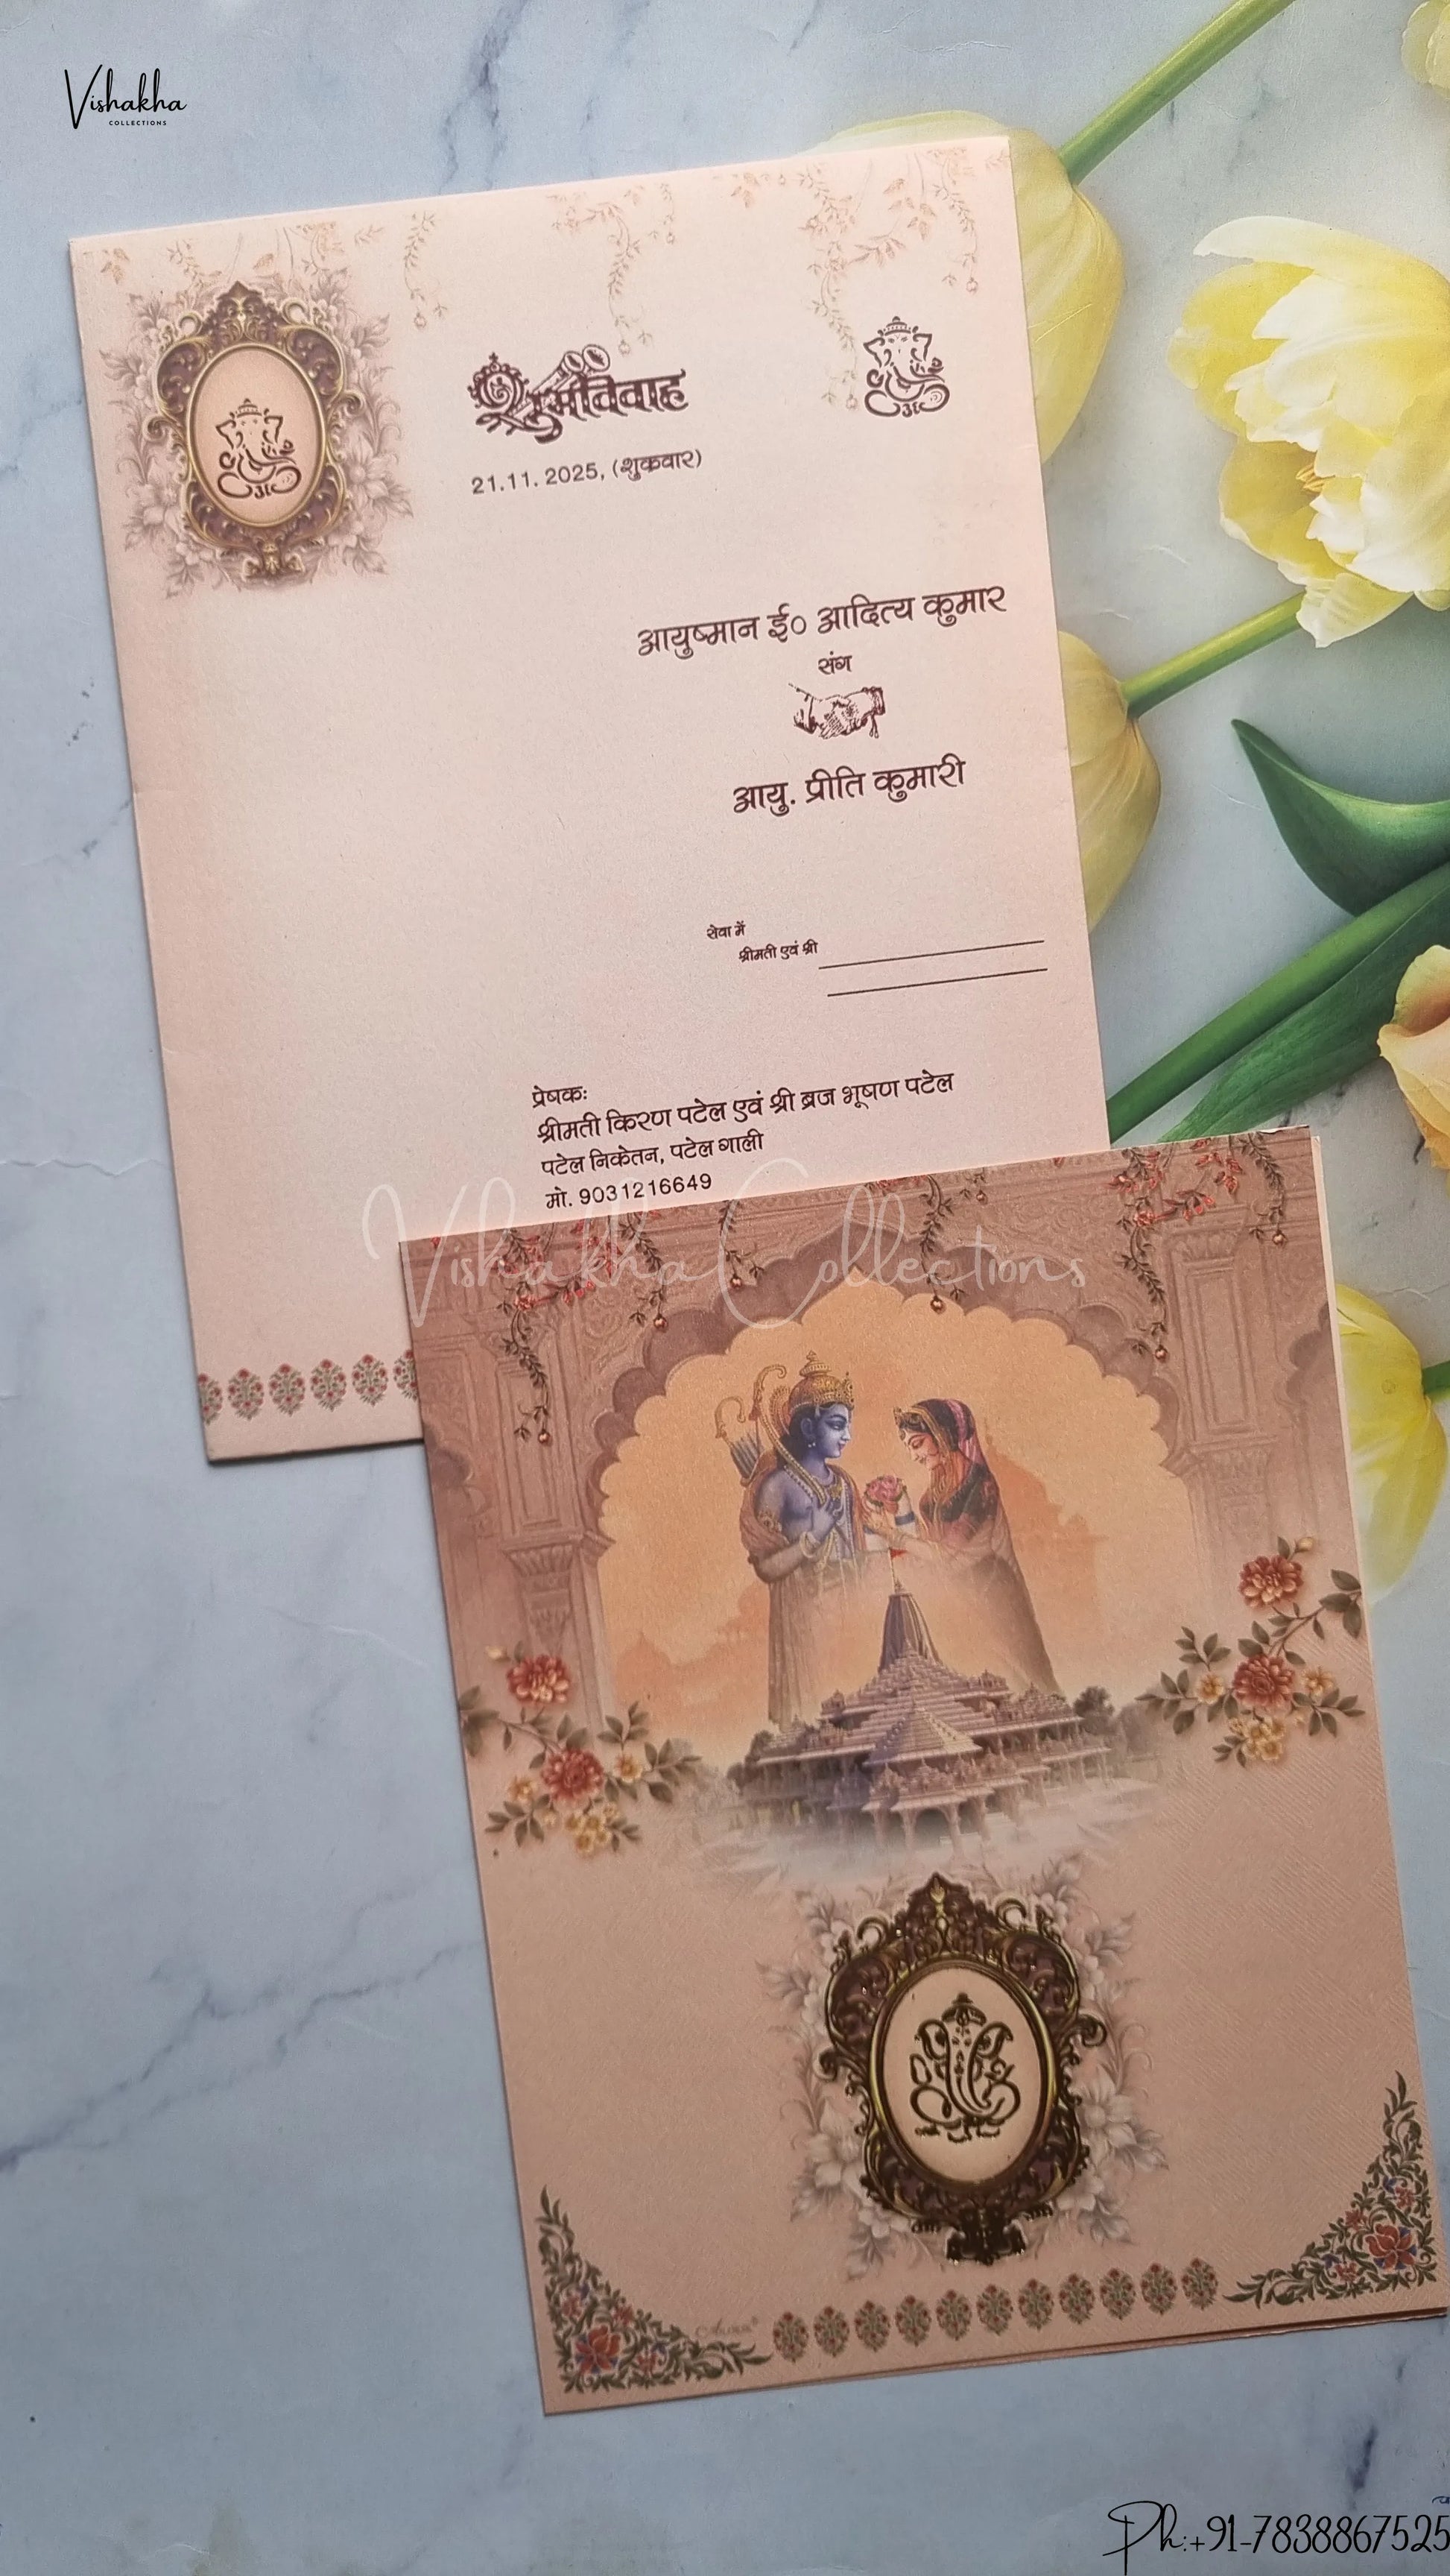 Vishakha
COLLECTIONS
शुभ विवाह
21.11.2025, (शुक्रवार)
आयुष्मान ई० आदित्य कुमार
संग
आयु. प्रीति कुमारी
सेवा में
श्रीमती एवं श्री
प्रेषकः
श्रीमती किरण पटेल एवं श्री ब्रज भूषण पटेल
पटेल निकेतन, पटेल गाली
मो. 9031216649
Vishakha Collections
Ph:+91-7838867525